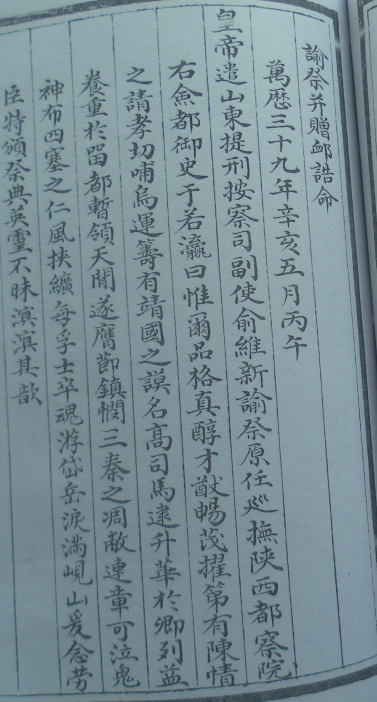 諭祭并贈卹誥命
萬歷三十九年辛亥五月丙午
皇帝遣山東提刑按察司副使俞維新諭祭原任廵撫陝西都察院
右僉都御史于若瀛曰惟爾品格真醇才猷暢茂擢第有陳情
之請孝切哺烏運籌有靖國之謨名髙司馬逮升華於卿列益
眷重於留都暫領天閑遂膺節鎮憫三秦之凋敝連章可泣鬼
神布四塞之仁風挾纊每孚士卒魂游岱岳淚滿峴山爰念勞
臣特頒祭典英靈不昧淇淇其歆